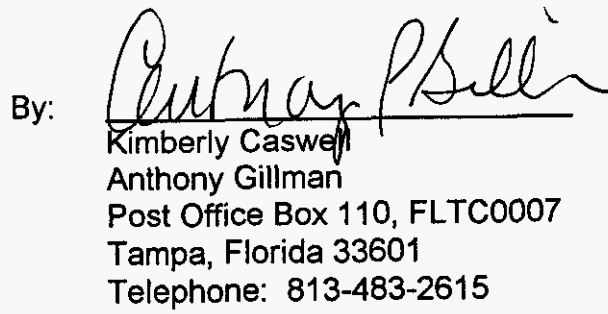 By:
Kimberly Caswell
Anthony Gillman
Post Office Box 110, FLTC0007
Tampa, Florida 33601
Telephone: 813-483-2615